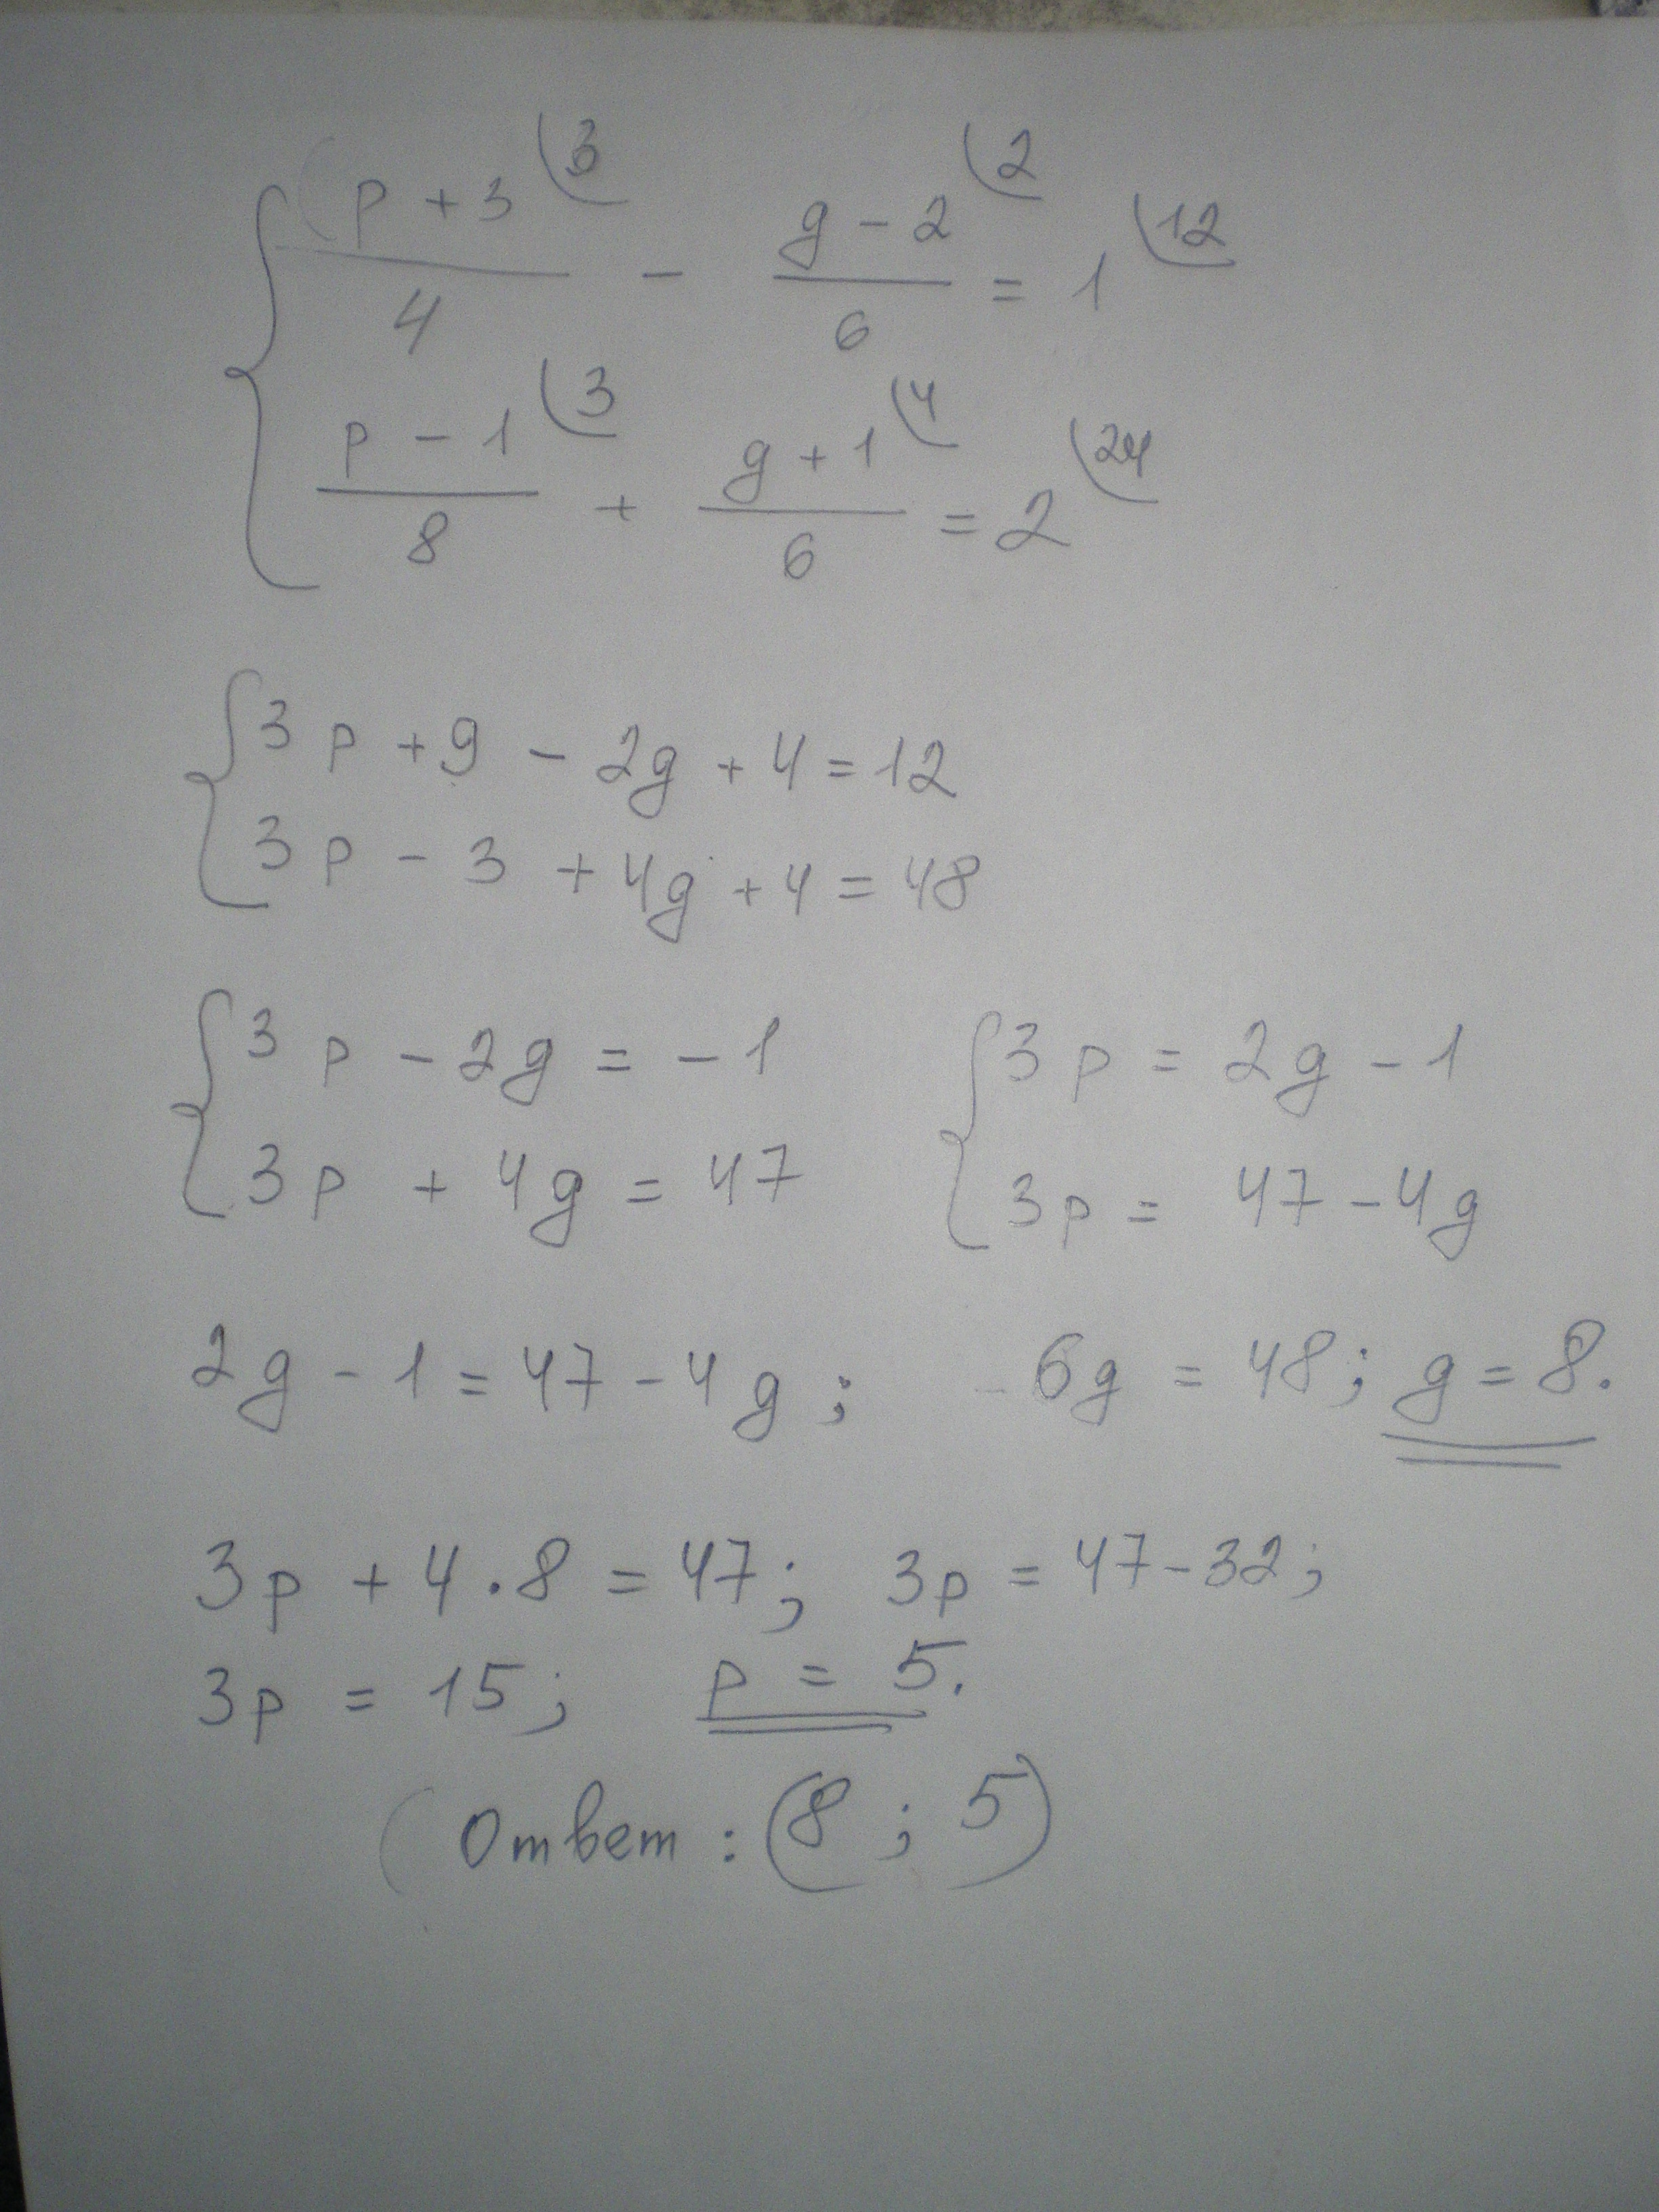 (p + 3 (3 / 4 - g - 2 (2 / 6 = 1 (12
p - 1 (3 / 8 + g + 1 (4 / 6 = 2 (24
3p + 9 - 2g + 4 = 12
3p - 3 + 4g + 4 = 48
3p - 2g = -1 3p = 2g - 1
3p + 4g = 47 3p = 47 - 4g
2g - 1 = 47 - 4g ; 6g = 48; g = 8.
3p + 4 · 8 = 47; 3p = 47 - 32;
3p = 15; p = 5.
(Ответ : (8 ; 5)